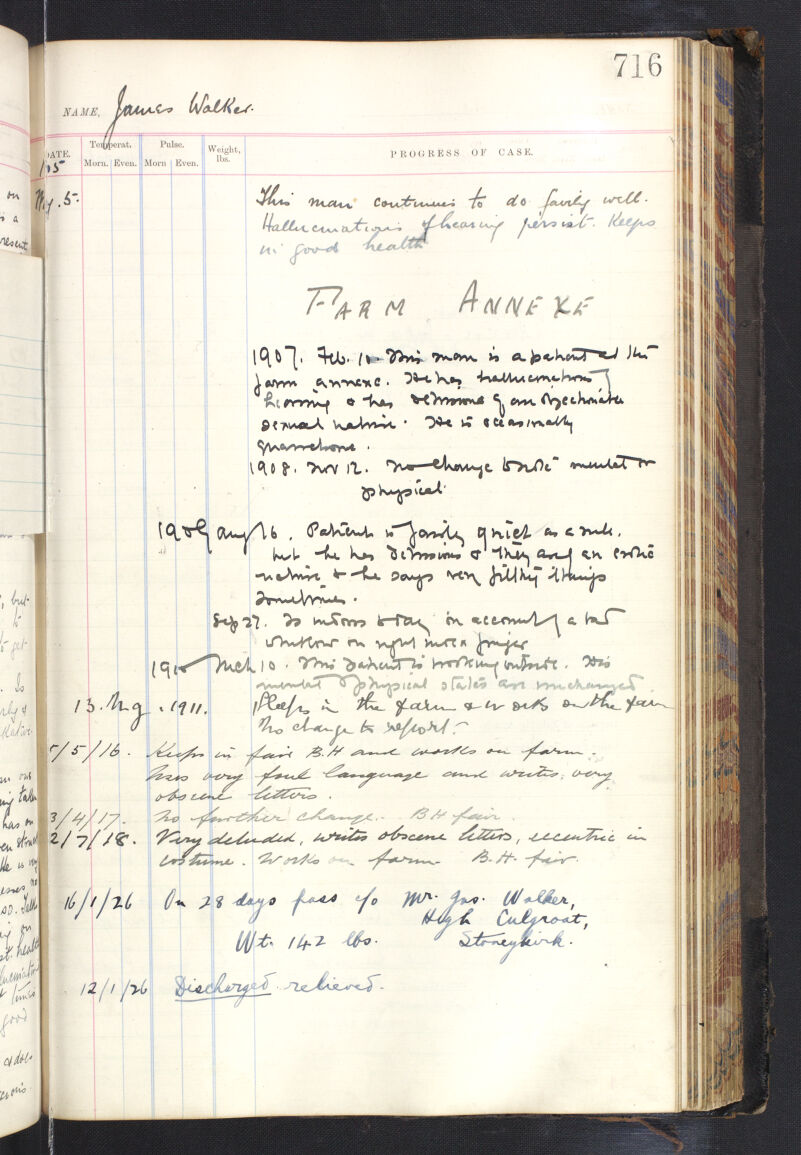 716
NAME, James Walker.
DATE. Temperat. Pulse. Weight, lbs. PROGRESS OF CASE.
Morn. Even. Morn Even.
5. This man continues to do fairly well.
Hallucinations of hearing persist. Keeps
in good health
FARM ANNEXE
1907. Feb. 10. This man is a patient at the
farm annexe. He has hallucinations of
hearing & has delusions of an objectionable
sexual nature. He is occasionally
quarrelsome.
1908. Nov 12. No change to note mental or
physical.
1909 Aug 16. Patient is fairly quiet as a rule.
but he has delusions & they are of an erotic
nature & he says very filthy things
sometimes.
Sep 27. Is indoors today on account of a bad
whitlow on right index finger
1910 Mch 10. This patient is working outside. His
mental & physical states are unchanged.
13. Aug. 1911. Sleeps in the farm & works on the farm
No change to report.
5/5/16. Keeps in fair B.H and works on farm.
Uses very foul language and writes very
obscene letters.
3/4/17. No further change. B H fair.
2/7/18. Very deluded, writes obscene letters, eccentric in
costume. Works on farm. B.H. fair.
16/1/26 On 28 days pass c/o Mr. Jas. Walker,
High Culgroat,
Wt. 142 lbs. Stoneykirk.
12/1/26 Discharged relieved.